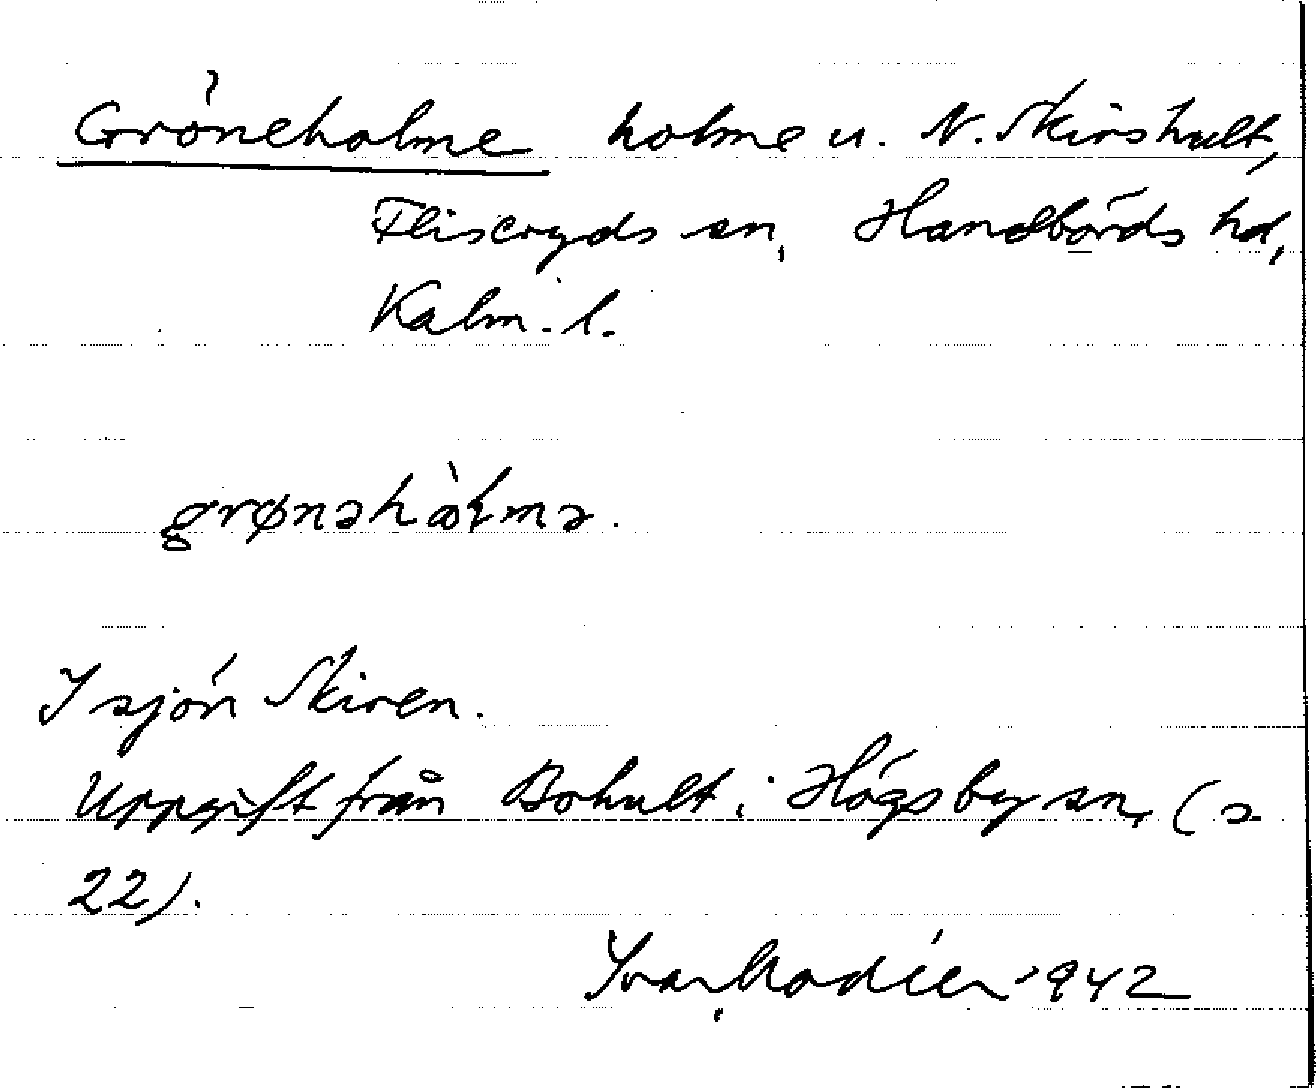 Gröneholme holme u. N. Skirshult,
Fliseryds sn, Handbörds hd,
Kalm. l.
grønəhòlmə.
I sjön Skiren.
Uppgift från Bohult i Högsby sn, (s
22).
Ivar Modéer 1942